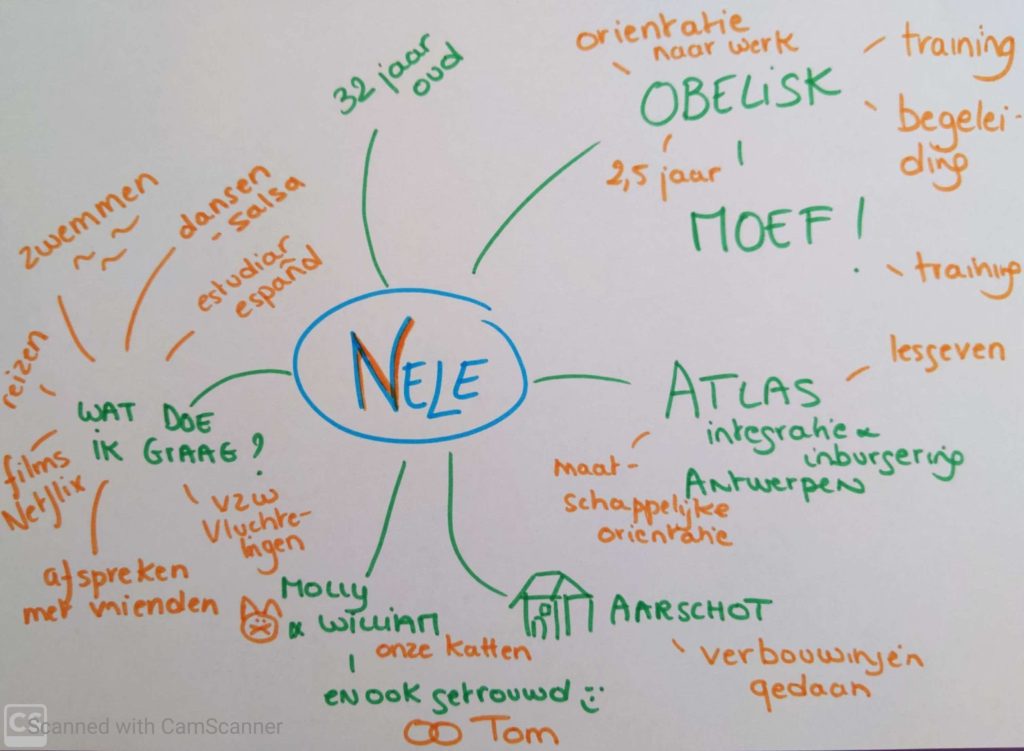 32 jaar
oud
orientatie
naar werk
OBELiSK
training
begelei-
ding
2,5 jaar
MOEF!
training
zwemmen
dansen
- salsa
estudiar
español
reizen
WAT DOE
iK GRAAG?
films
Netflix
afspreken
met vrienden
vzw
Vluchte-
lingen
NELE
ATLAS
integratie &
inburgering
ANTWERPEN
lesgeven
maat-
schappelijke
orientatie
MOLLY
& WILLIAM
onze katten
en ook getrouwd
Tom
AARSCHOT
verbouwingen
gedaan
CS
Scanned with CamScanner